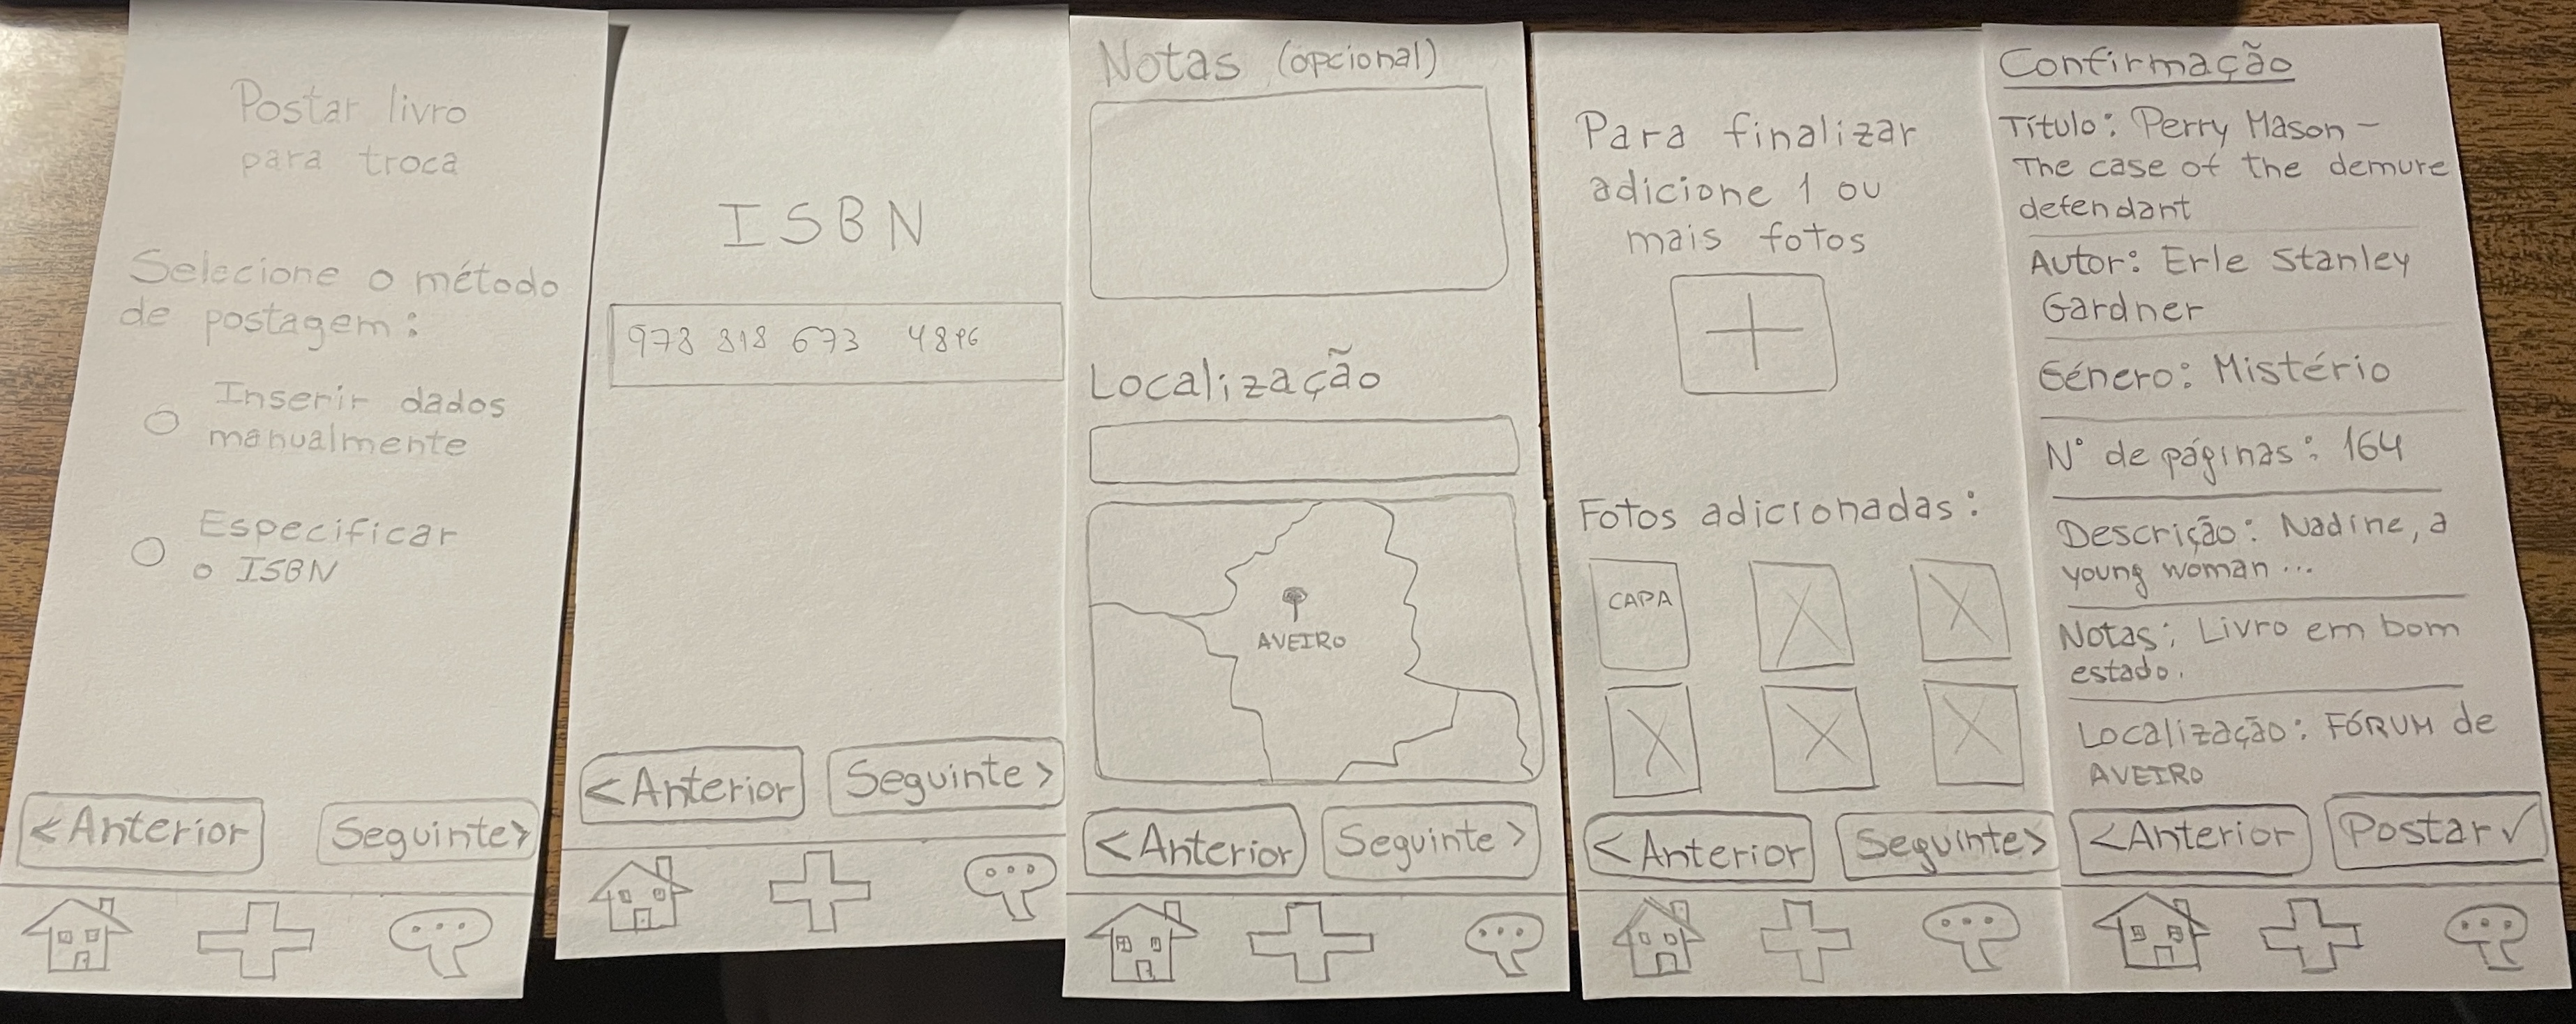 Postar livro
para troca
Selecione o método
de postagem:
Inserir dados
manualmente
Especificar
o ISBN
< Anterior
Seguinte >
ISBN
978 818 673 4896
< Anterior
Seguinte >
Notas (opcional)
Localização
AVEIRO
< Anterior
Seguinte >
Para finalizar
adicione 1 ou
mais fotos
Fotos adicionadas:
CAPA
< Anterior
Seguinte >
Confirmação
Título: Perry Mason -
The case of the demure
defendant
Autor: Erle Stanley
Gardner
Género: Mistério
Nº de páginas: 164
Descrição: Nadine, a
young woman ...
Notas: Livro em bom
estado.
Localização: FÓRUM de
AVEIRO
< Anterior
Postar ✓